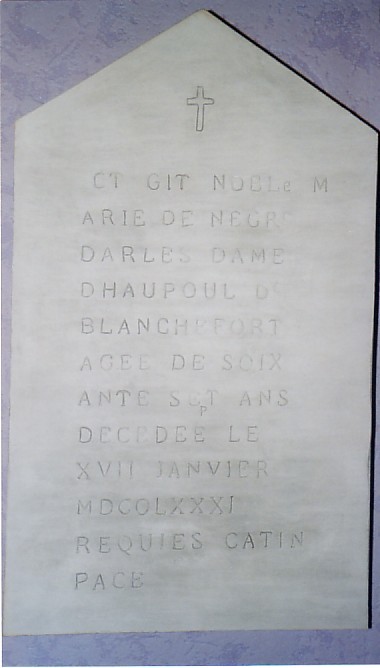 CT GIT NOBLe M
ARIE DE NEGRe
DARLES DAME
DHAUPOUL De
BLANCHEFORT
AGEE DE SOIX
ANTE SEpT ANS
DECEDEE LE
XVII JANVIER
MDCOLXXXI
REQUIES CATIN
PACE